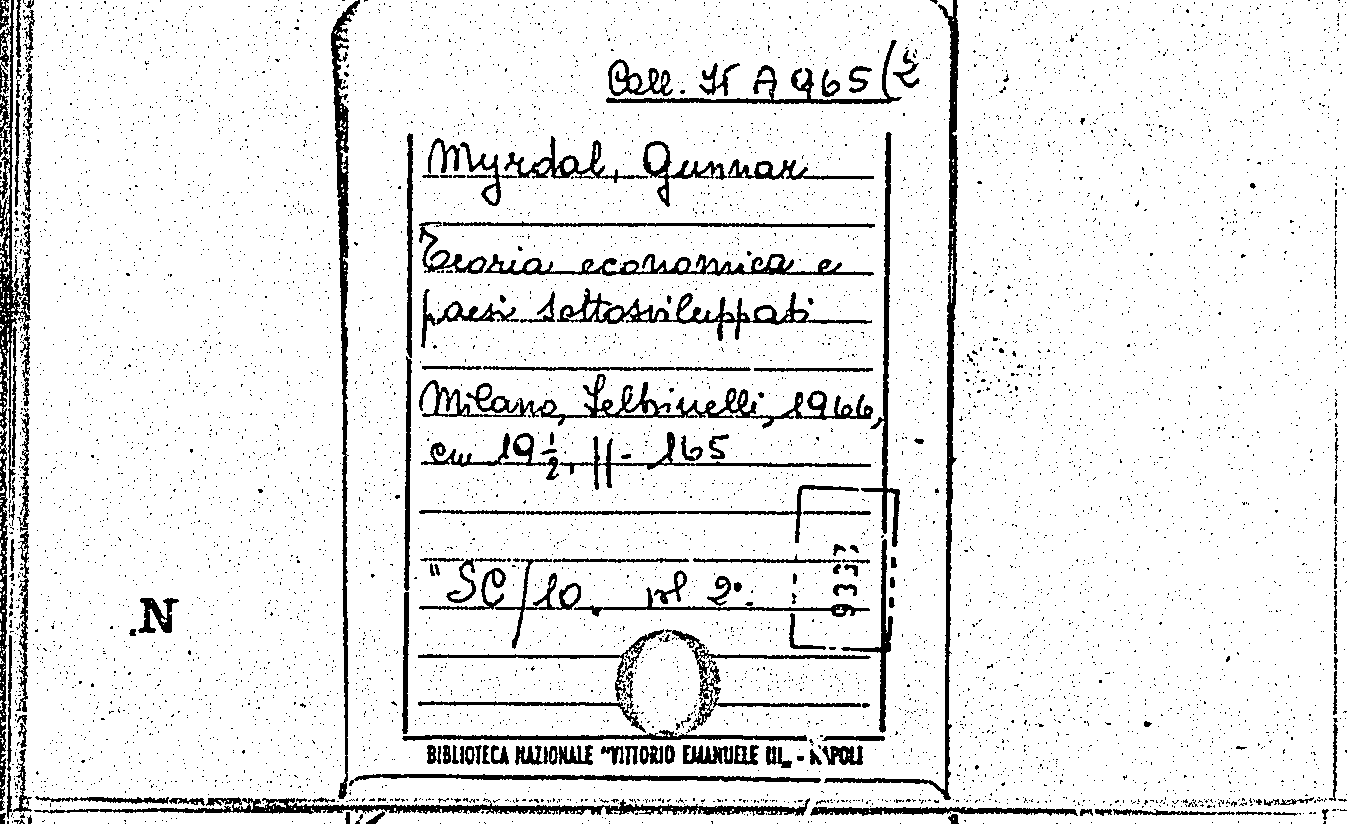 Coll. It A 965(2
Myrdal, Gunnar
Teoria economica e
paesi sottosviluppati
Milano, Feltrinelli, 1966,
cm 19½, ||- 165
"SC/10. vol 2°.
9357
N
BIBLIOTECA NAZIONALE "VITTORIO EMANUELE III„ - NAPOLI